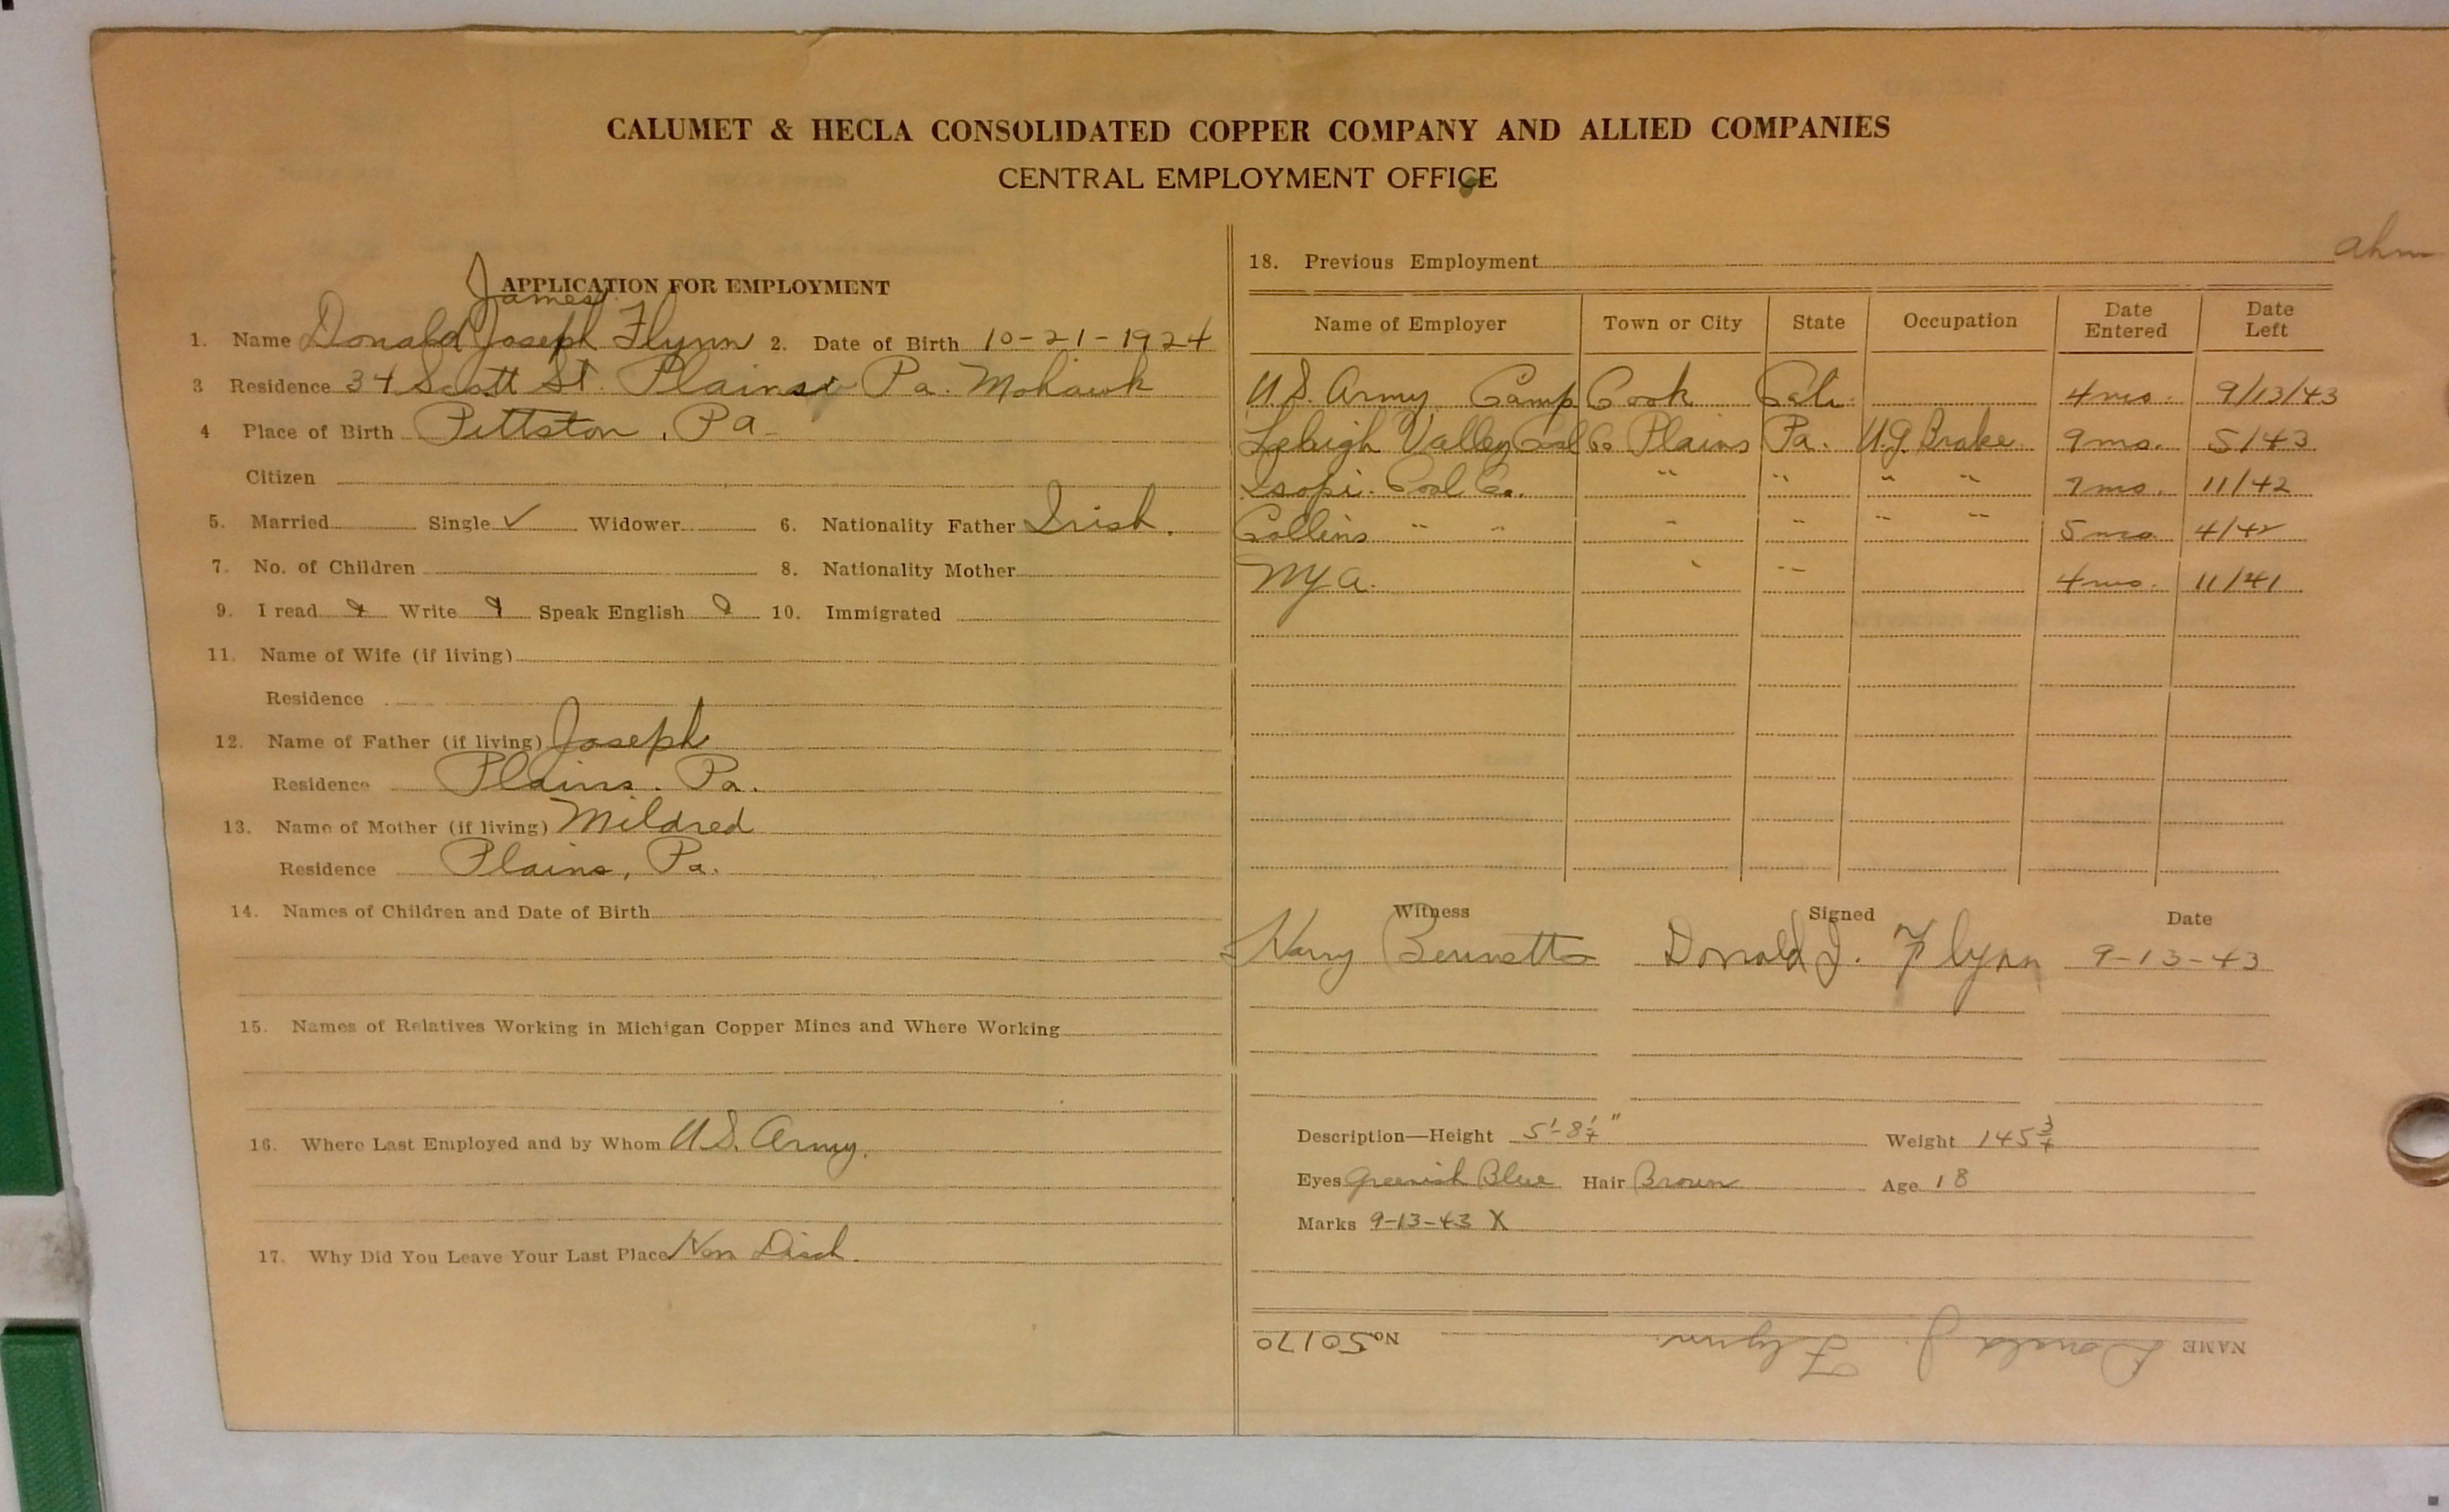 CALUMET & HECLA CONSOLIDATED COPPER COMPANY AND ALLIED COMPANIES
CENTRAL EMPLOYMENT OFFICE
APPLICATION FOR EMPLOYMENT
James
1. Name Donald Joseph Flynn 2. Date of Birth 10-21-1924
3 Residence 34 Scott St. Plains Pa. Mohawk
4 Place of Birth Pittston, Pa
Citizen
5. Married Single ✓ Widower 6. Nationality Father Irish.
7. No. of Children 8. Nationality Mother
9. I read Write Speak English 10. Immigrated
11. Name of Wife (if living)
Residence
12. Name of Father (if living) Joseph
Residence Plains. Pa.
13. Name of Mother (if living) Mildred
Residence Plains, Pa.
14. Names of Children and Date of Birth
15. Names of Relatives Working in Michigan Copper Mines and Where Working
16. Where Last Employed and by Whom U.S. Army.
17. Why Did You Leave Your Last Place Hon Disch.
18. Previous Employment
Name of Employer Town or City State Occupation Date Entered Date Left
U.S. Army Camp Cook Cali. 4 mo. 9/13/43
Lehigh Valley Coal Co Plains Pa. U.G. Brake 9 mo. 5/43
Coal Co. " " " " 7 mo. 11/42
Collins " " " " " " 5 mo. 4/42
NYA. " " 4 mo. 11/41
Witness Signed Date
Harry Bennetts Donald J. Flynn 9-13-43
Description—Height 5'-8¼" Weight 145¾
Eyes Greenish Blue Hair Brown Age 18
Marks 9-13-43 X
NAME Donald J. Flynn. No. 50170